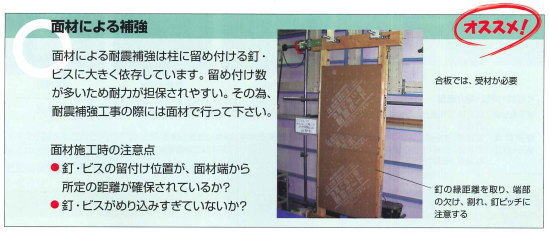 面材による補強
オススメ!
面材による耐震補強は柱に留め付ける釘・
ビスに大きく依存しています。留め付け数
が多いため耐力が担保されやすい。その為、
耐震補強工事の際には面材で行って下さい。
面材施工時の注意点
●釘・ビスの留付け位置が、面材端から
所定の距離が確保されているか?
●釘・ビスがめり込みすぎていないか?
合板では、受材が必要
釘の縁距離を取り、端部
の欠け、割れ、釘ピッチに
注意する